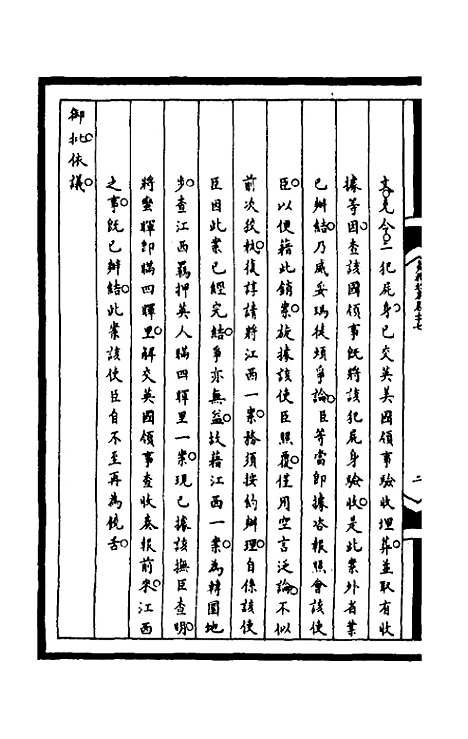 文見今二犯屍身已交英美國領事驗收埋葬並取有收
據等因查該國領事既將該犯屍身驗收是此案外省業
已辦結乃威妥瑪徒煩爭論臣等當即據咨報照會該使
臣以便藉此銷案旋據該使臣照覆僅用空言泛論不似
前次狡執復諄請將江西一案務須按約辦理自係該使
臣因此案已經完結爭亦無益故藉江西一案為轉圜地
步查江西羈押英人瞞四暉里一案現已據該撫臣查明
將蛮暉即瞞四暉里解交英國領事查收奏報前來江西
之事既已辦結此案該使臣自不至再為饒舌
御批依議
二